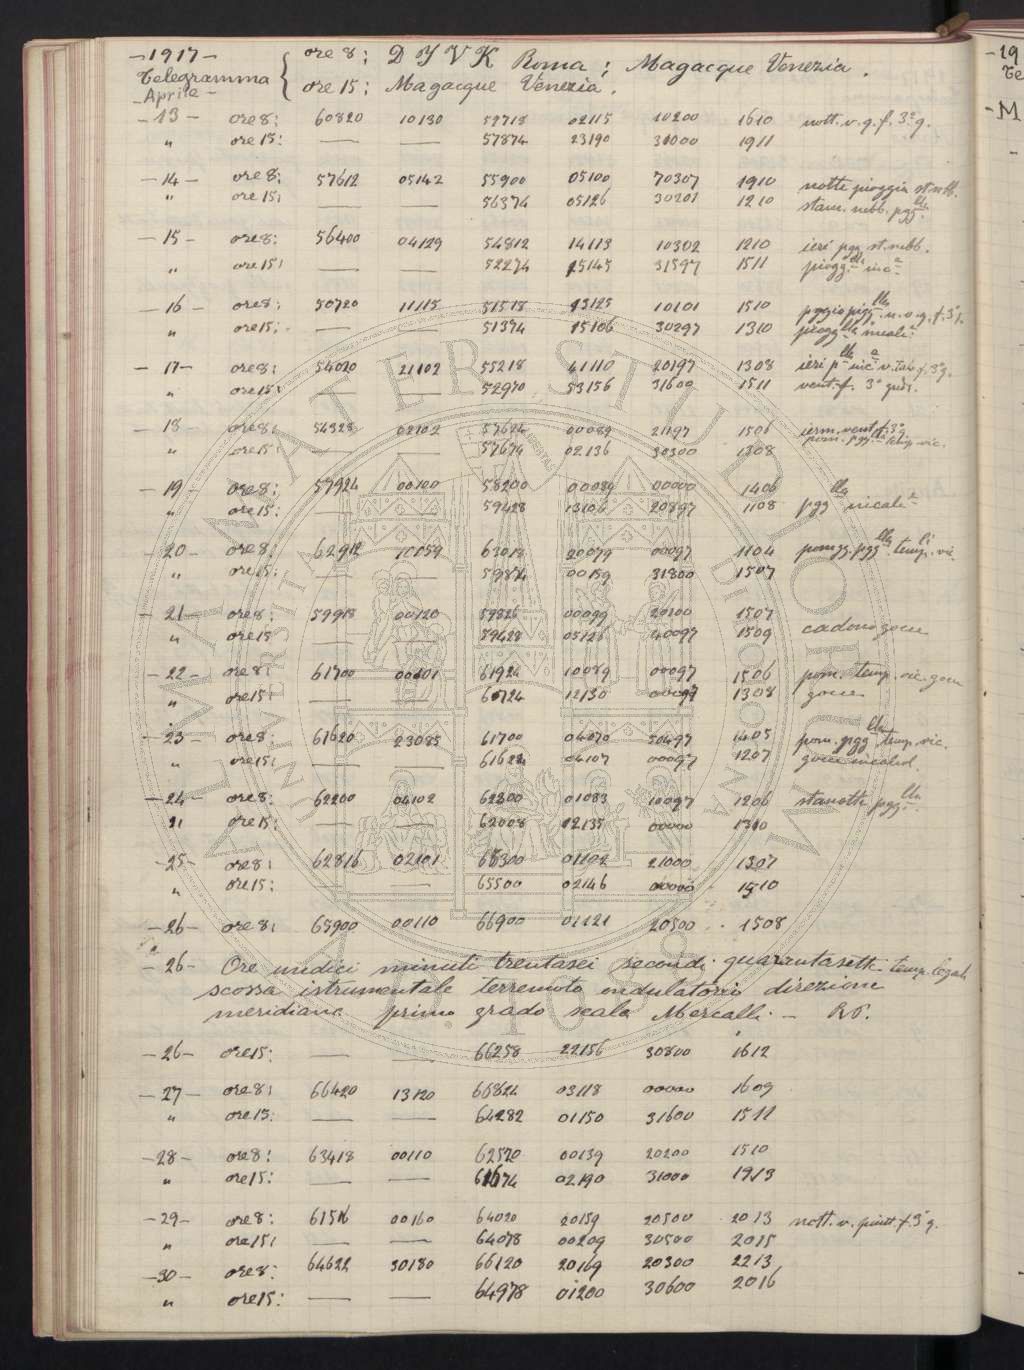 -1917- ore 8: D I V K Roma; Magacque Venezia.
Telegramma
-Aprile- ore 15: Magacque Venezia.
-13- ore 8: 60820 10130 52718 02115 10200 1610 nott. v. g. f. 3° g.
" ore 15: — — 57874 23190 31000 1911
-14- ore 8: 57612 05142 55900 05100 70307 1910 notte pioggia st. nebb.
" ore 15: — — 56374 05126 30201 1210 stam. nebb. pgg.lla
-15- ore 8: 56400 04129 54812 14113 10302 1210 ieri pgg. st. nebb.
" ore 15: — — 52274 15145 31597 1511 piogg.lla inc.a
-16- ore 8: 50720 11115 51518 13125 10101 1510
" ore 15: — — 51374 15106 30297 1310
-17- ore 8: 54020 21102 55218 41110 20197 1308
" ore 15: — — 52970 53156 31600 1511 vent. f. 3° quad.
-18- ore 8: 54328 02102 57624 00089 21197 1506
" ore 15: — — 57674 02136 30300 1308
-19- ore 8: 57924 00100 58200 00084 00000 1406
" ore 15: — — 59428 13106 20897 1108 pgglla incal.a
-20- ore 8: 62912 11059 63018 20079 00097 1104
" ore 15: — — 59874 00159 31800 1507
-21- ore 8: 59918 00120 59826 00099 20100 1507
" ore 15 — — 59428 05126 40097 1509 cadono gocce
-22- ore 8: 61700 00101 61924 10089 00097 1506 pom. temp. vic. gocce
" ore 15: — — 60724 12130 00097 1308 gocce
-23- ore 8: 61620 23085 61700 04070 50497 1405 pom. pgglla temp. vic.
" ore 15: — — 61622 04107 00097 1207
-24- ore 8: 62200 04102 62800 01083 10097 1206 stanotte pgg.lla
21 ore 15: — — 62008 12135 00000 1310
-25- ore 8: 62816 02101 65300 01102 21000 1307
" ore 15: — — 65500 02146 00000 1510
-26- ore 8: 65900 00110 66900 01121 20500 1508
-26- Ore undici minuti trentasei secondi quarantasette temp. legale
scossa istrumentale terremoto ondulatorio direzione
meridiana primo grado scala Mercalli -
-26- ore 15: — — 66258 22156 30800 1612
-27- ore 8: 66420 13120 66824 03118 00000 1609
" ore 15: — — 64282 01150 31600 1511
-28- ore 8: 63418 00110 62520 00139 20200 1510
" ore 15: — — 61674 02190 31000 1913
-29- ore 8: 61516 00160 64020 20159 20500 2013
" ore 15: — — 64078 00209 30500 2015
-30- ore 8: 64622 30180 66120 20169 20300 2213
" ore 15: — — 64978 01200 30600 2016
ALMA MATER STUDIORUM
UNIVERSITÀ DI BOLOGNA